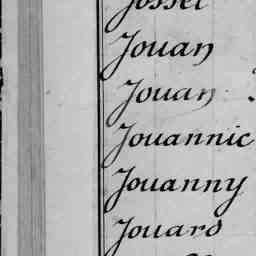 Josset
Jouan
Jouan
Jouannic
Jouanny
Jouard